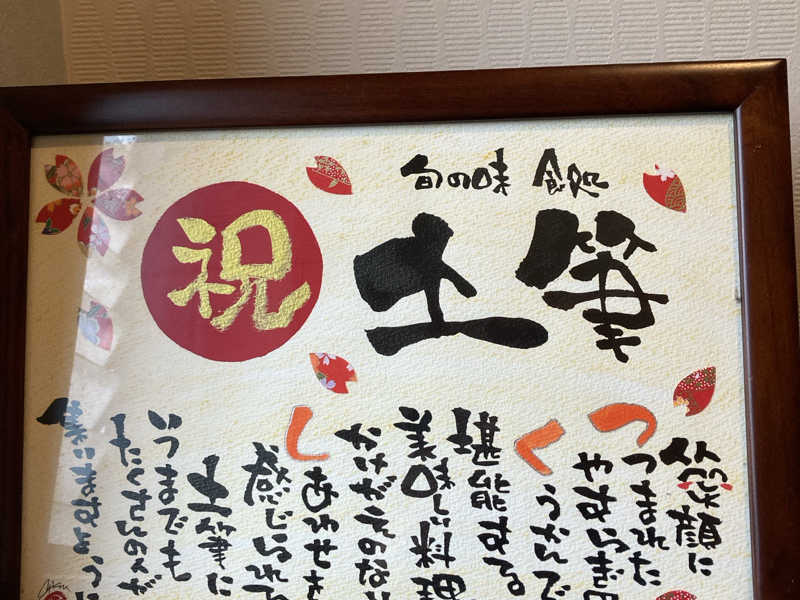 旬の味 食処
土筆
祝
笑顔に
つつまれた
やすらぎ
くうかんで
堪能する
美味しい料理
かけがえのない
しあわせを
感じられ
土筆に
いつまでも
たくさんの人が
集いますよう